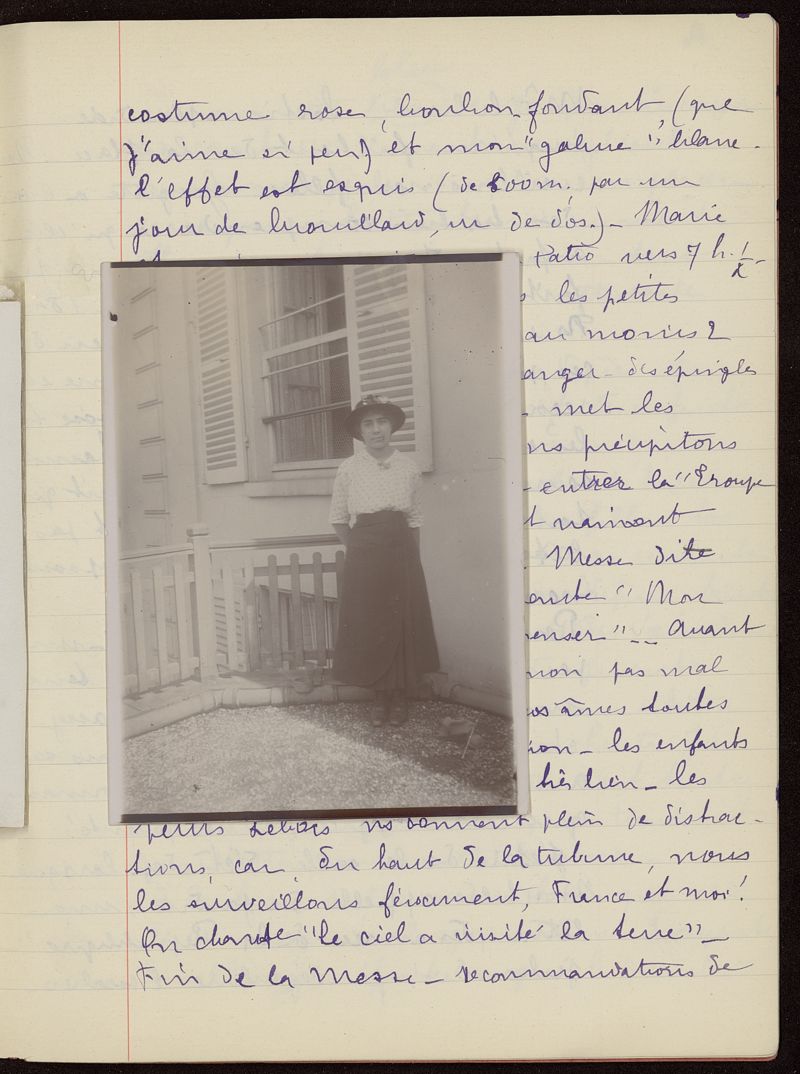 costume rose, bonbon-fondant, (que
j'aime si peu) et mon "galure" blanc.
L'effet est exquis (de 500m; par un
jour de brouillard, vu de dos.) - Marie
Patro vers 7 h. 1/2 -
les petites
au moins 2
anger - des épingles
met les
ns précipitons
- entrer la "Troupe
t
Messe dite
ante "Mon
enser" -- Avant
non pas mal
os âmes toutes
ion - les enfants
très bien - les
petits ns donnent plein de distrac-
tions, car, du haut de la tribune, nous
les surveillons férocement, France et moi!
On chante "le ciel a visité la terre" -
Fin de la Messe - recommandations de